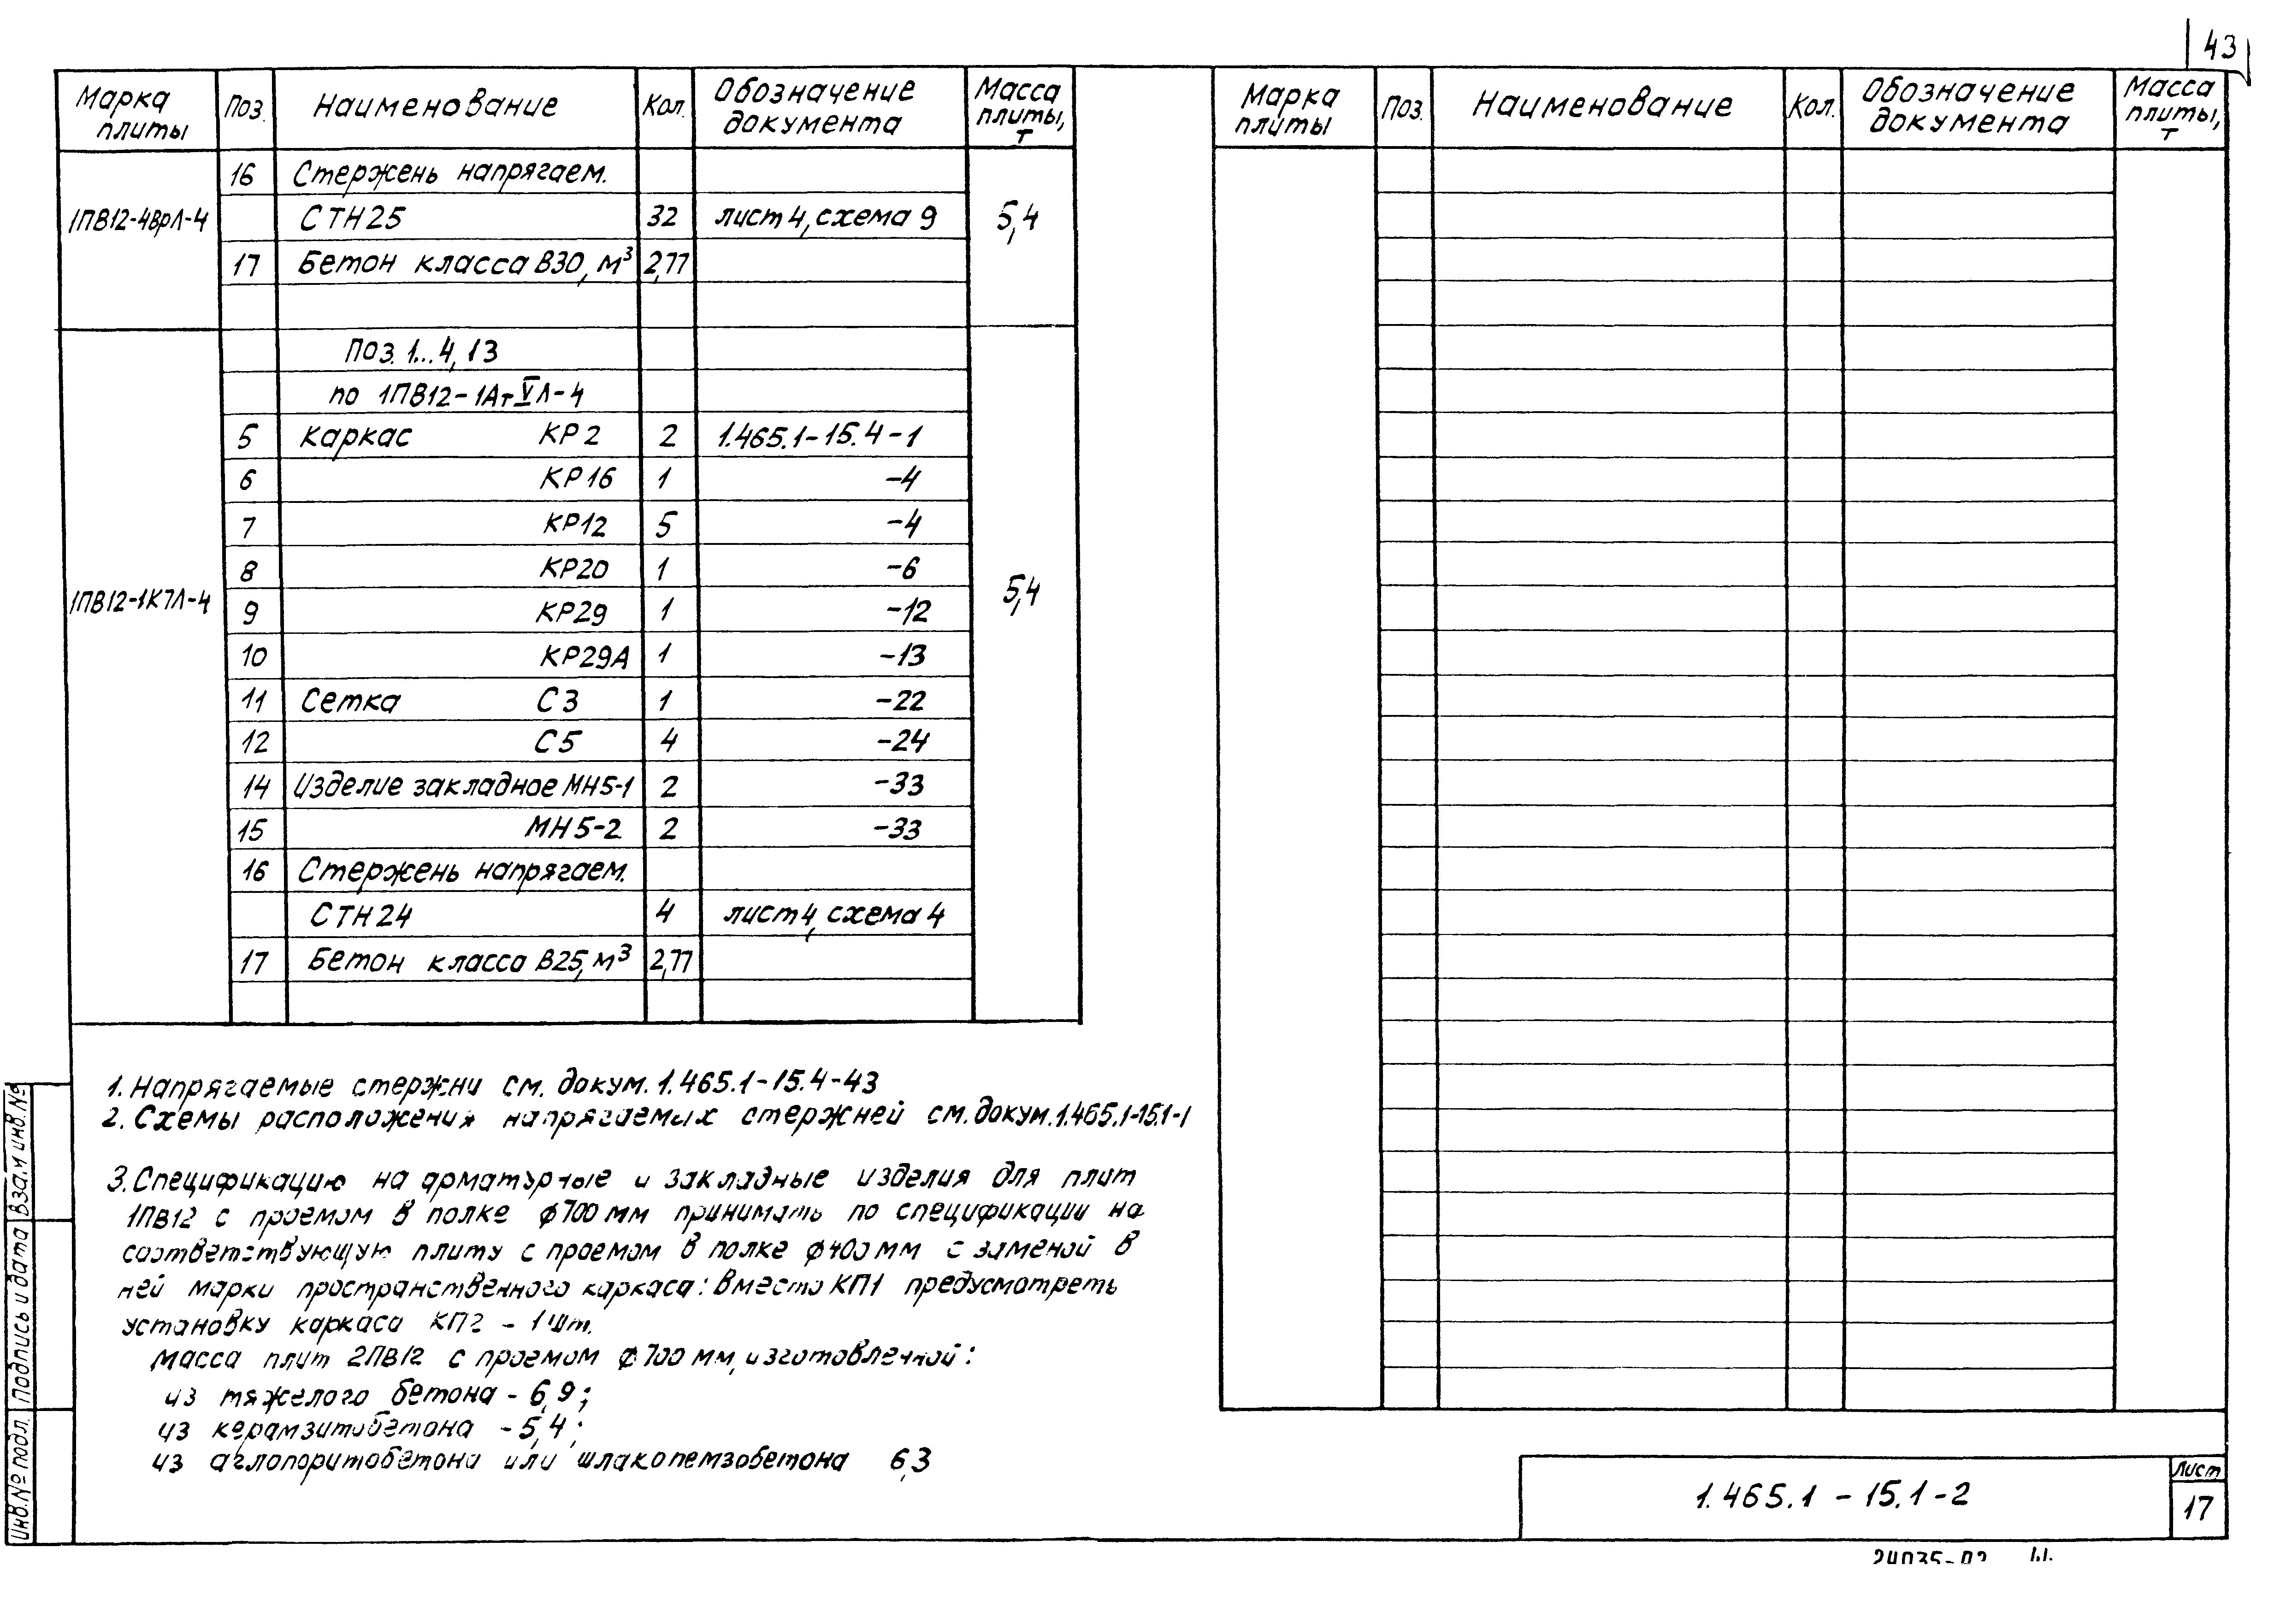 43
Марка плиты Поз. Наименование Кол. Обозначение документа Масса плиты, т
1ПВ12-4ВрЛ-4 5,4
16 Стержень напрягаем.
СТН25 32 лист 4, схема 9
17 Бетон класса В30, м³ 2,77
1ПВ12-1К7Л-4 5,4
Поз. 1...4, 13
по 1ПВ12-1АтVЛ-4
5 Каркас КР2 2 1.465.1-15.4-1
6 КР16 1 -4
7 КР12 5 -4
8 КР20 1 -6
9 КР29 1 -12
10 КР29А 1 -13
11 Сетка С3 1 -22
12 С5 4 -24
14 Изделие закладное МН5-1 2 -33
15 МН5-2 2 -33
16 Стержень напрягаем.
СТН24 4 лист 4, схема 4
17 Бетон класса В25, м³ 2,77
1. Напрягаемые стержни см. докум. 1.465.1-15.4-43
2. Схемы расположения напрягаемых стержней см. докум. 1.465.1-15.1-1
3. Спецификацию на арматурные и закладные изделия для плит
1ПВ12 с проемом в полке ф700 мм принимать по спецификации на
соответствующую плиту с проемом в полке ф400 мм с заменой в
ней марки пространственного каркаса: вместо КП1 предусмотреть
установку каркаса КП2 - 1 шт.
Масса плит 2ПВ12 с проемом ф700 мм, изготовленной:
из тяжелого бетона - 6,9;
из керамзитобетона - 5,4;
из аглопоритобетона или шлакопемзобетона 6,3
Марка плиты Поз. Наименование Кол. Обозначение документа Масса плиты, т
1.465.1 - 15.1-2
Лист
17
Инв. № подл. Подпись и дата Взам. инв. №